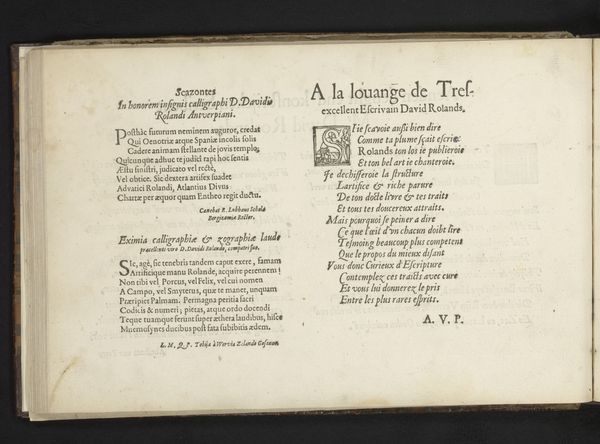 Scazontes
In honorem insignis calligraphi D. Davidis
Rolandi Antverpiani.
Posthàc futurum neminem auguror, credat
Qui Oenotriæ atque Spaniæ incolit solis
Cadere animam stellante de jovis templo,
Quicunque adhuc te judicâ rapi hoc sentis
Æstu sinistri, judicato vel rectè,
Vel obtice. Sic dextera artifex suadet
Advatici Rolandi, Atlantius Divus
Chartæ per æquor quam Entheo regit ductu.
Canebat R. Lubbæus Scholæ
Bergizomiæ Rector.
Eximia calligraphiæ & zographiæ laude
præcellenti viro D. Davidi Rolando, compatri suo.
Sic, agè, sic tenebris tandem caput exere, famam
Artificique manu Rolande, acquire perennem:
Non tibi vel Porcus, vel Felix, vel cui nomen
A Campo, vel Smyterus, quæ te manet, unquam
Præripiet Palmam. Permagna peritia sacri
Codicis & numeri; pietas, atque ordo docendi
Teque tuamque ferunt super æthera laudibus, hisce
Mnemosynes ducibus post fata subibitis ædem.
L. M. Q. P. Tobias à Wervia Zelando Goesanus
A la loüange de Tres-
excellent Escrivain David Rolands.
SIie sçavoie aussi bien dire
Comme ta plume sçait escrire
Rolands ton los ie publieroie
Et ton bel art ie chanteroie.
Je dechifferoie la structure
L'artifice & riche parure
De ton docte livre & tes traits
Et tous tes doucereux attraits.
Mais pourquoi se peiner a dire
Ce que l'œil d'vn chacun doibt lire
Tesmoing beaucoup plus competent
Que le propos du mieux disant
Vous donc Curieux d'Escripture
Contemplez ces traicts avec cure
Et vous lui donnerez le pris
Entre les plus rares esprits.
A. V. P.